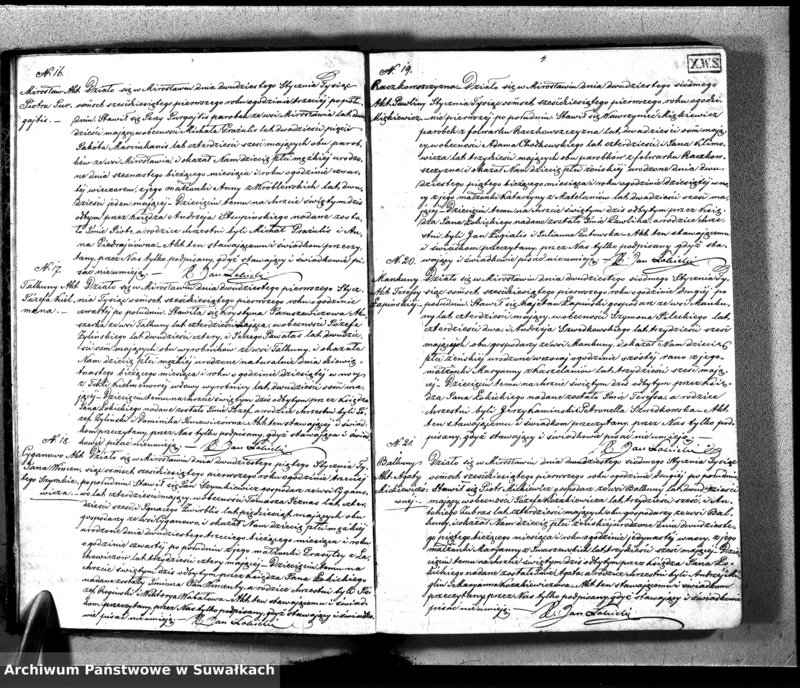 No 16.
Mirosław Akt Działo się w Mirosławiu dnia dwudziestego Stycznia Tysiąc
Piotra Pur- ośmset sześćdziesiątego pierwszego roku o godzinie trzeciej popołu-
gajtis. — dniu. Stawił się Jerzy Purgajtis parobek ze wsi Mirosławia lat dwa-
dzieścia mający, w obecności Michała lat dwudziestu pięciu
Jakóba lat czterdzieści mających obu parob-
ków ze wsi Mirosławia, i okazał Nam dziecię płci męzkiej urodzo-
ne dnia szesnastego bieżącego miesiąca i roku o godzinie czwar-
tej wieczorem, z jego małżonki Anny z Wróblewskich lat dwa-
dzieścia jeden mającej. Dziecięciu temu na chrzcie świętym dziś
odbytym przez Księdza Andrzeja Stupińskiego nadane zosta-
ło Imie Piotr, a rodzice chrzestni byli Michał i An-
na Akt ten stawającemu i świadkom przeczy-
tany, przez Nas tylko podpisany, gdyż stawający i świadkowie pi-
sać nieumieją. — X. Jan Łobicki
No 17.
Talkuny Akt Działo się w Mirosławiu dnia dwudziestego pierwszego Stycz-
Józefa Kiel- nia Tysiąc ośmset sześćdziesiątego pierwszego roku o godzinie
mana. — czwartej po południu. Stawiła się Krystyna A-
kuszerka ze wsi Talkuny lat czterdzieści mająca, w obecności Józefa
Żylińskiego lat dwadzieścia cztery, i Jerzego lat dwadzie-
ścia ośm mających obu wyrobników ze wsi Talkuny, i okazała
Nam dziecię płci męzkiej urodzone naturalnie dnia dziewięt-
nastego bieżącego miesiąca i roku o godzinie dziesiątej w nocy
z Tekli Kielmanowej wdowy wyrobnicy lat dwadzieścia ośm mają-
cej. Dziecięciu temu na chrzcie świętym dziś odbytym przez Księdza
Jana Łobickiego nadane zostało Imie Józef, a rodzice chrzestni byli Jó-
zef Żyliński i Dominika Akt ten stawającej i świad-
kom przeczytany, przez Nas tylko podpisany, gdyż stawająca i świad-
kowie pisać nieumieją. — X. Jan Łobicki
No 18.
Cyganowo Akt Działo się w Mirosławiu dnia dwudziestego piątego Stycznia Ty-
Jana Wincen- siąc ośmset sześćdziesiątego pierwszego roku o godzinie trzeciej
tego Szymkie- popołudniu. Stawił się Jan Szymkiewicz gospodarz ze wsi Cygano-
wicza. — wo lat czterdzieści mający, w obecności Tomasza lat czter-
dzieści sześć i Ignacego lat pięćdziesiąt mających obu
gospodarzy ze wsi Cyganowo, i okazał Nam dziecię płci męzkiej
urodzone dnia dwudziestego trzeciego bieżącego miesiąca i roku
o godzinie czwartej po południu z jego małżonki z Za-
chewiczów lat trzydzieści cztery mającej. Dziecięciu temu na
chrzcie świętym dziś odbytym przez Księdza Jana Łobickiego
nadane zostały Imiona Jan Wincenty, a rodzice chrzestni byli Jó-
zef i Wiktorya Akt ten stawającemu i świad-
kom przeczytany, przez Nas tylko podpisany, gdyż stawający i świadko-
wie pisać nieumieją. — X. Jan Łobicki
X.W.S.
No 19.
Raczkowszczyzna Działo się w Mirosławiu dnia dwudziestego siódmego
Akt Pauliny Stycznia Tysiąc ośmset sześćdziesiątego pierwszego roku o godzi-
Miszkiewicz- nie pierwszej po południu. Stawił się Wawrzyniec Miszkiewicz
parobek z folwarku Raczkowszczyzna lat dwadzieścia ośm mają-
cy, w obecności Adama Chodkowskiego lat czterdzieści i Jana Klimo-
wicza lat trzydzieści mających obu parobków z folwarku Raczkow-
szczyzna i okazał Nam dziecię płci żeńskiej urodzone dnia dwu-
dziestego piątego bieżącego miesiąca i roku o godzinie dziesiątej w no-
cy z jego małżonki Katarzyny z lat dwadzieścia sześć ma-
jącej. Dziecięciu temu na chrzcie świętym dziś odbytym przez Księ-
dza Jana Łobickiego nadane zostało Imie Paulina, a rodzice chrze-
stni byli Jan i Julianna Akt ten stawającemu
i świadkom przeczytany, przez Nas tylko podpisany, gdyż sta-
wający i świadkowie pisać nieumieją. — X. Jan Łobicki
No 20.
Mankuny Działo się w Mirosławiu dnia dwudziestego siódmego Stycznia Ty-
Akt Teresy siąc ośmset sześćdziesiątego pierwszego roku o godzinie drugiej po
Łapińskiej południu. Stawił się Kajetan Łapiński gospodarz ze wsi Manku-
ny lat czterdzieści mający, w obecności Szymona Pileckiego lat
czterdzieści dwa i Andrzeja lat trzydzieści sześć
mających obu gospodarzy ze wsi Mankuny, i okazał Nam dziecię
płci żeńskiej urodzone wczoraj o godzinie szóstej rano z jego
małżonki Maryanny z lat trzydzieści sześć mającej.
Dziecięciu temu na chrzcie świętym dziś odbytym przez Księ-
dza Jana Łobickiego nadane zostało Imie Teresa, a rodzice
chrzestni byli Jerzy Kamiński i Petronella Akt
ten stawającemu i świadkom przeczytany, przez Nas tylko pod-
pisany, gdyż stawający i świadkowie pisać nieumieją. —
X. Jan Łobicki
No 21.
Balkuny Działo się w Mirosławiu dnia dwudziestego siódmego Stycznia Tysiąc
Akt Agaty ośmset sześćdziesiątego pierwszego roku o godzinie drugiej po południu
Mickiewiczó- Stawił się Piotr Mickiewicz gospodarz ze wsi Balkuny lat dwadzieścia
wnej. — mający, w obecności Józefa lat trzydzieści sześć, i An-
lat czterdzieści mających obu gospodarzy ze wsi Bal-
kuny, i okazał Nam dziecię płci żeńskiej urodzone dnia dwudzieste-
go piątego bieżącego miesiąca i roku o godzinie jedynastej w nocy, z jego
małżonki Maryanny z lat trzydzieści sześć mającej. Dzie-
cięciu temu na chrzcie świętym dziś odbytym przez Księdza Jana Ło-
bickiego nadane zostało Imie Agata, a rodzice chrzestni byli Andrzej
i Maryanna Akt ten stawającemu i świadkom
przeczytany, przez Nas tylko podpisany, gdyż stawający i świadkowie
pisać nieumieją. — X. Jan Łobicki
Archiwum Państwowe w Suwałkach